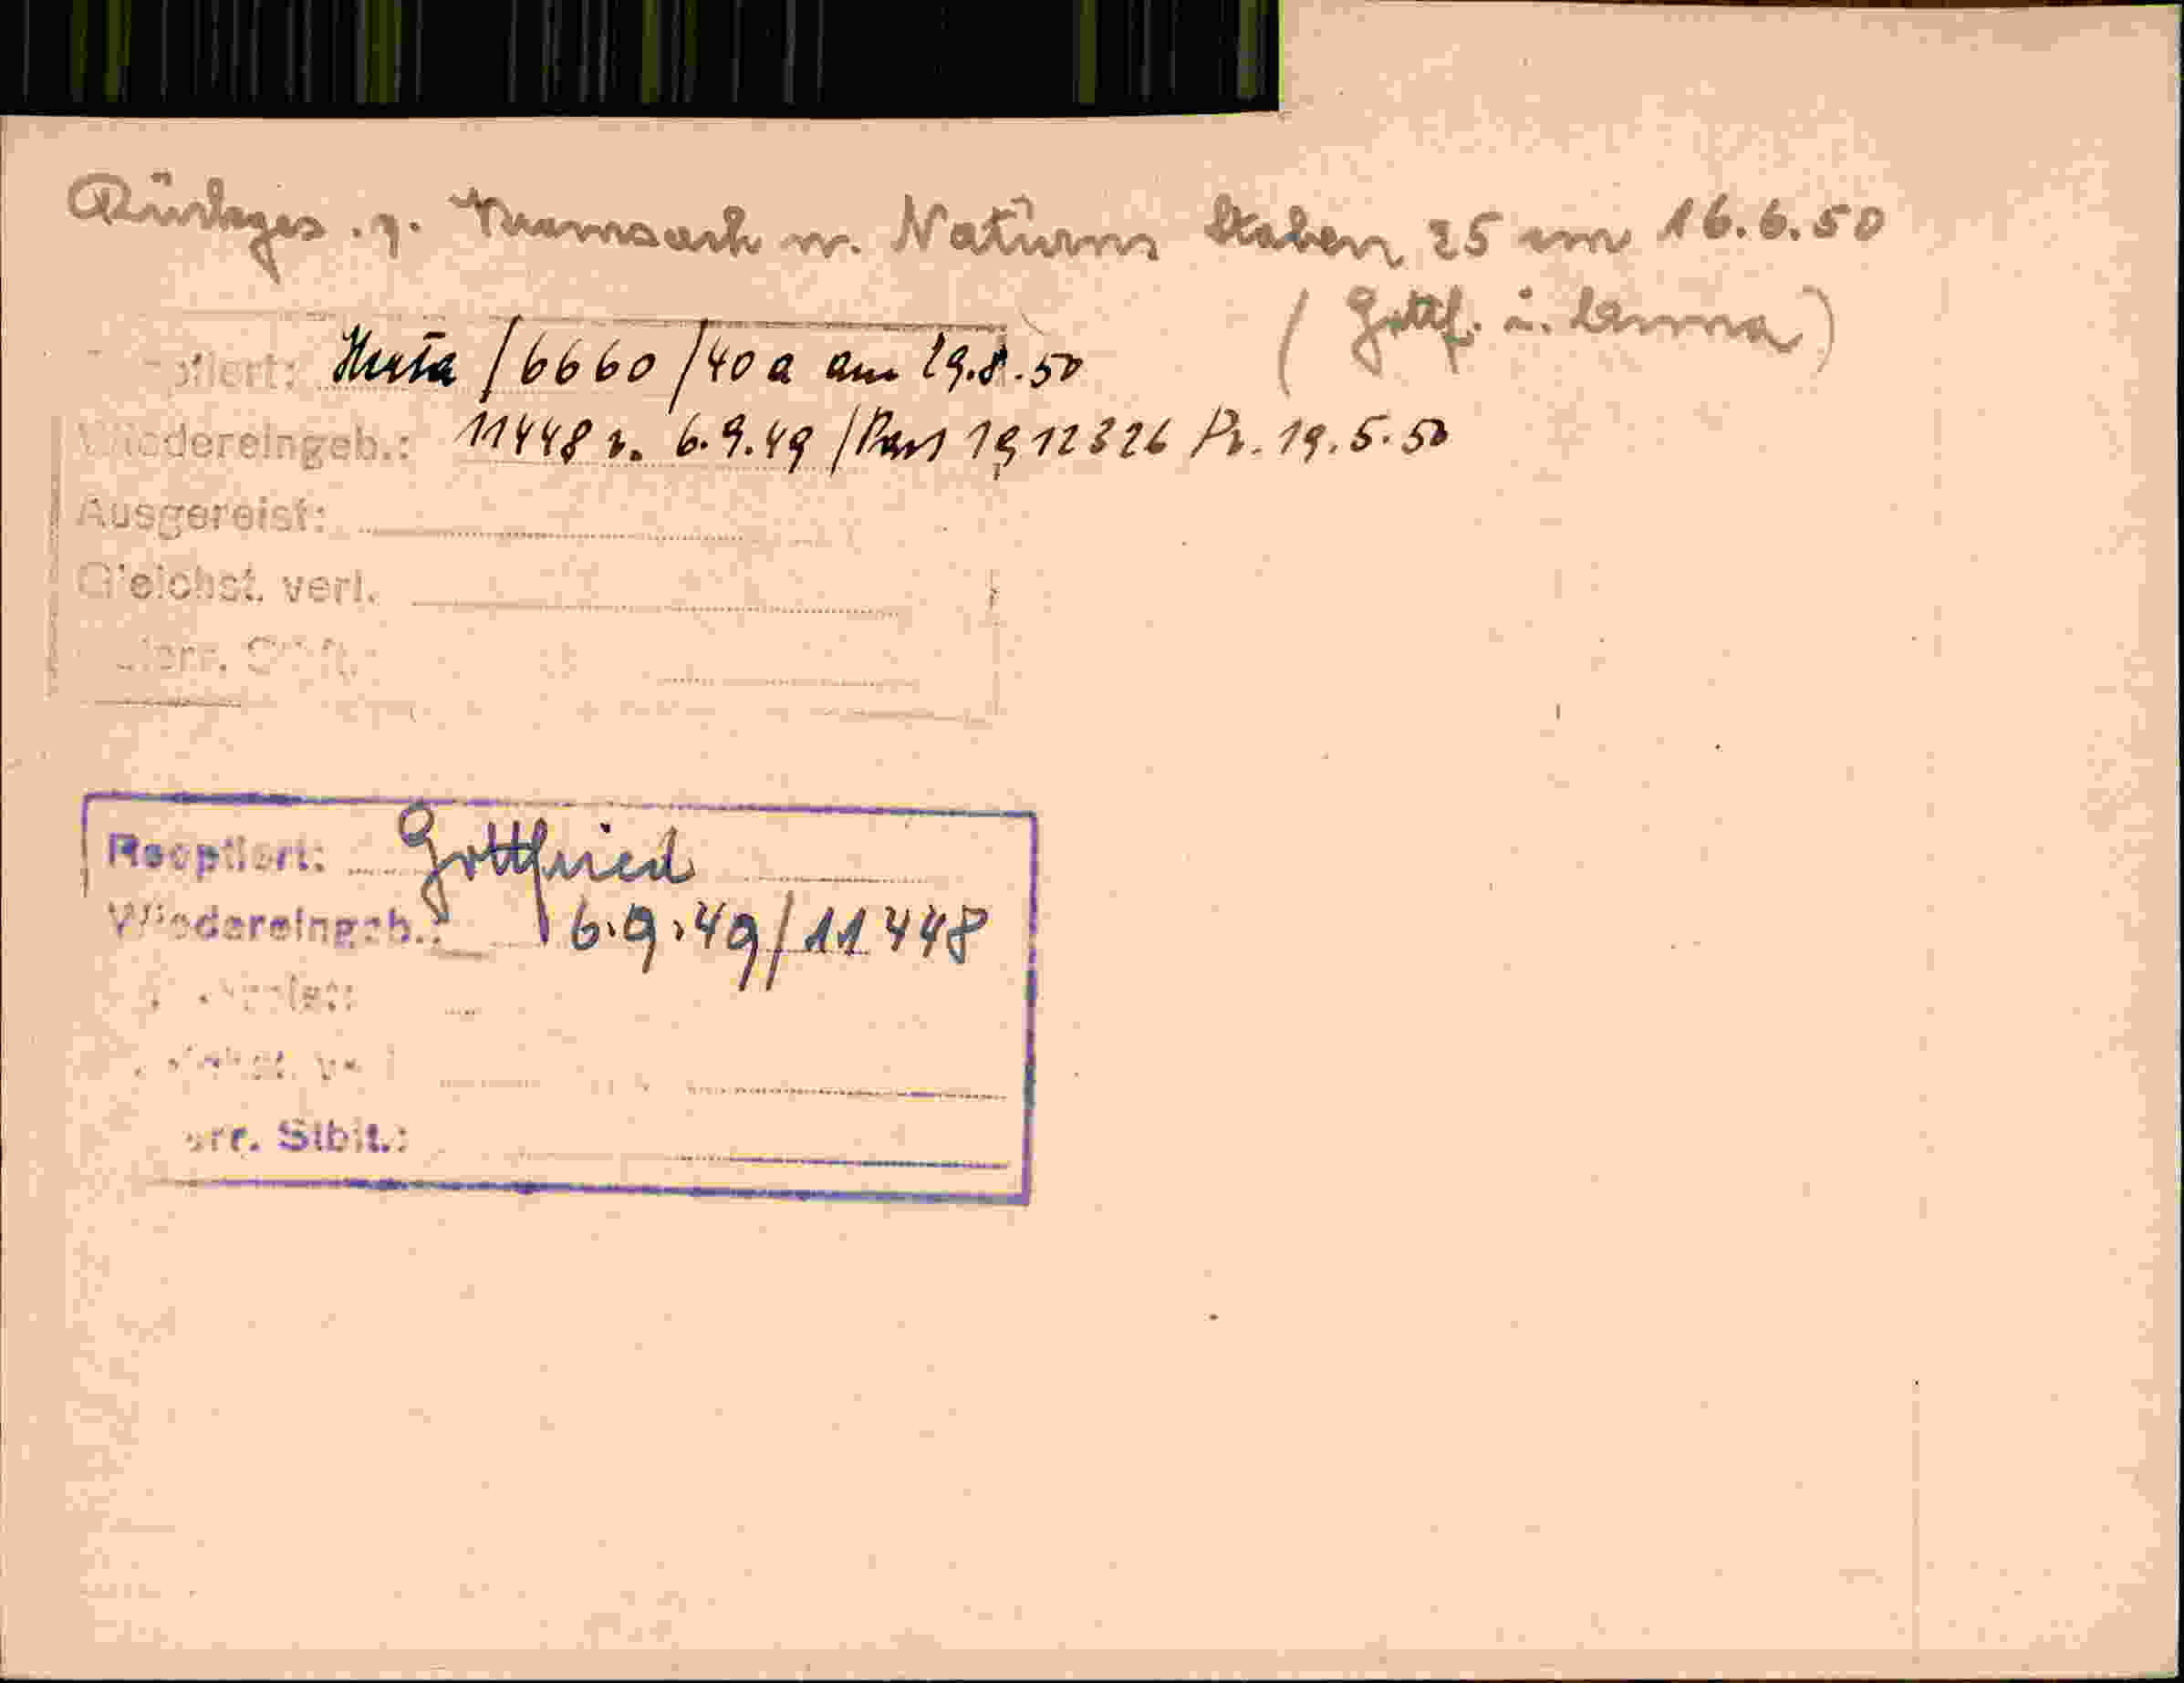 Rückges. n. Kramsach n. Naturns Staben 25 am 16.6.50
(Gottf. u. Anna)
optiert: /6660/40a am 29.8.50
Wiedereingeb.: 11448 v. 6.9.49 /Pass 1912326 Pr. 19.5.50
Ausgereist:
Gleichst. verl.
Reoptiert: Gottfried
Wiedereingeb.: 6.9.49/11448
err. Stbit.: